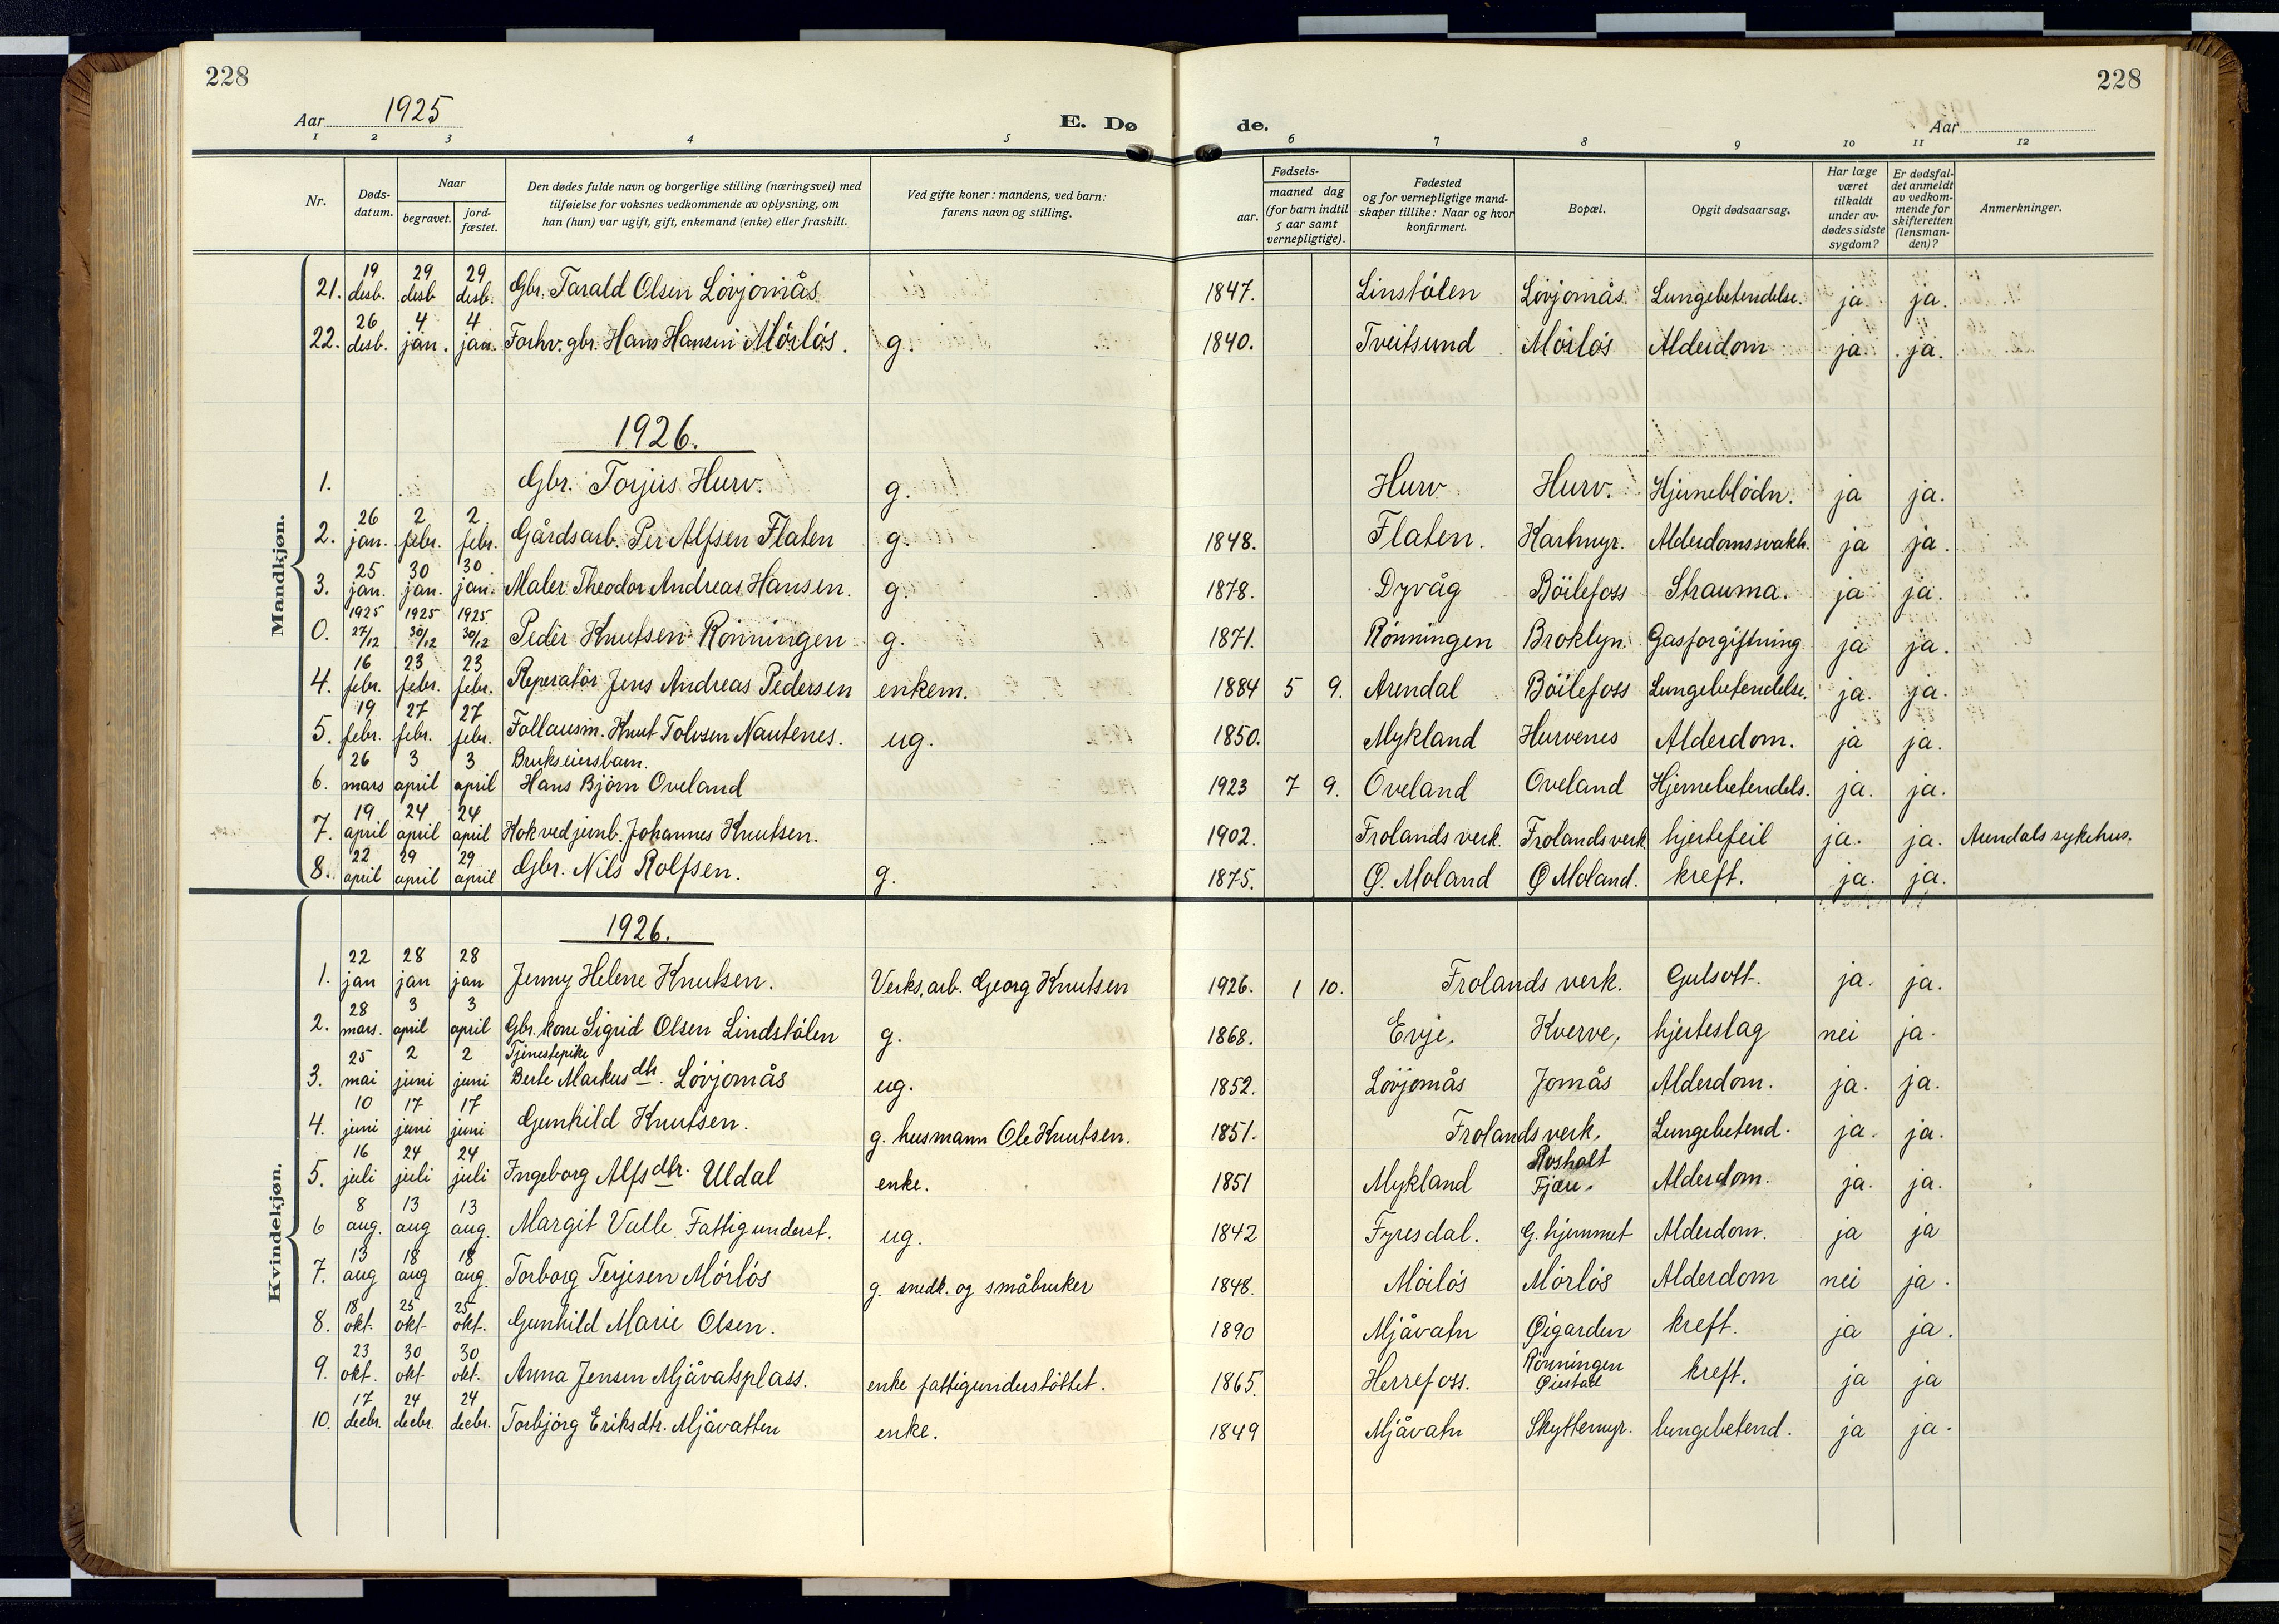 228
228
Aar 1925
E. Dø
de.
Aar
1 2 3 4 5 6 7 8 9 10 11 12
Nr.
Døds-datum.
Naar
begravet.
jord-fæstet.
Den dødes fulde navn og borgerlige stilling (næringsvei) med
tilføielse for voksnes vedkommende av oplysning, om
han (hun) var ugift, gift, enkemand (enke) eller fraskilt.
Ved gifte koner: mandens, ved barn:
farens navn og stilling.
Fødsels-
aar.
maaned dag
(for barn indtil
5 aar samt
vernepligtige).
Fødested
og for vernepligtige mand-
skaper tillike: Naar og hvor
konfirmert.
Bopæl.
Opgit dødsaarsag.
Har læge
været
tilkaldt
under av-
dødes sidste
sygdom?
Er dødsfal-
det anmeldt
av vedkom-
mende for
skifteretten
(lensman-
den)?
Anmerkninger.
Mandkjøn.
21. 19 desb. 29 desb 29 desb. Gbr. Tarald Olsen Lövjomås 1847. Linstölen Lövjomås. Lungebetendelse. ja ja.
22. 26 desb. 4 jan. 4 jan. Forhv. gbr. Hans Hansen Mörlös. g. 1840. Tveitsund Mörlös Alderdom ja. ja.
1926.
1. Gbr. Torjus Hurv. g. Hurv Hurv. Hjerneblödn. ja ja.
2. 26 jan. 2 febr. 2 febr. Gårdsarb. Per Alfsen Flaten g. 1848. Flaten. Kartmyr. Alderdomssvakh. ja ja.
3. 25 jan. 30 jan. 30 jan. Maler Theodor Andreas Hansen. g. 1878. Dyvåg Böilefoss Strauma. ja ja.
0. 1925 27/12 1925 30/12 1925 30/12 Peder Knutsen Rönningen g. 1871. Rönningen Broklyn. Gasforgiftning ja ja.
4. 16 febr. 23 febr. 23 febr. Reperatör Jens Andreas Pedersen enkem. 1884 5 9. Arendal Böilefoss Lungebetendelse. ja. ja.
5. 19 febr. 27 febr. 27 febr. Follausm. Knut Tolvsen Nautenes. ug. 1850. Mykland Hurvenes Alderdom. ja ja.
6. 26 mars 3 april 3 april Brukseiersbarn. Hans Björn Oveland 1923 7 9. Oveland Oveland Hjernebetendels. ja. ja.
7. 19 april 24 april 24 april Kok ved jernb. Johannes Knutsen. 1902. Frolands verk. Frolands verk hjertefeil ja. ja. Arendals sykehus.
8. 22 april 29 april 29 april Gbr. Nils Rolfsen. g. 1875. Ø. Moland Ø Moland. kreft. ja. ja.
Kvindekjøn.
1926.
1. 22 jan 28 jan 28 jan Jenny Helene Knutsen. Verks, arb. Georg Knutsen 1926. 1 10. Frolands verk. Gulsott. ja. ja.
2. 28 mars. 3 april 3 april Gbr. kone Sigrid Olsen Lindstölen g. 1868. Evje. Kverve, hjerteslag nei ja.
3. 25 mai 2 juni 2 juni Tjenestepike Berte Markusdtr. Lövjomås ug. 1852. Lövjomås Jomås Alderdom. ja. ja.
4. 10 juni 17 juni 17 juni Gunhild Knutsen. g. husmann Ole Knutsen. 1851. Frolands verk. Lungebetend. ja. ja.
5. 16 juli 24 juli 24 juli Ingeborg Alfsdtr. Uldal enke. 1851 Mykland Rosholt Fjære. Alderdom. ja. ja.
6 8 aug. 13 aug 13 aug. Margit Valle. Fattigunderst. ug. 1842 Fyresdal. G. hjemmet Alderdom. ja ja
7. 13 aug 18 aug 18 aug. Torborg Terjesen Mörlös g. snedk. og småbruker 1848. Mörlös Mörlös Alderdom nei ja.
8. 18 okt. 25 okt 25 okt. Gunhild Marie Olsen. 1890 Mjåvatn Øigarden kreft. ja ja.
9. 23 okt. 30 okt 30 okt. Anna Jensen Mjåvatsplass. enke fattigunderstöttet. 1865. Herrefoss. Rönningen Øiestad kreft. ja ja
10. 17 decbr. 24 decbr. 24 decbr. Torbjörg Eriksdtr. Mjåvatten enke. 1849 Mjåvatn Skyttemyr. lungebetend. ja ja.